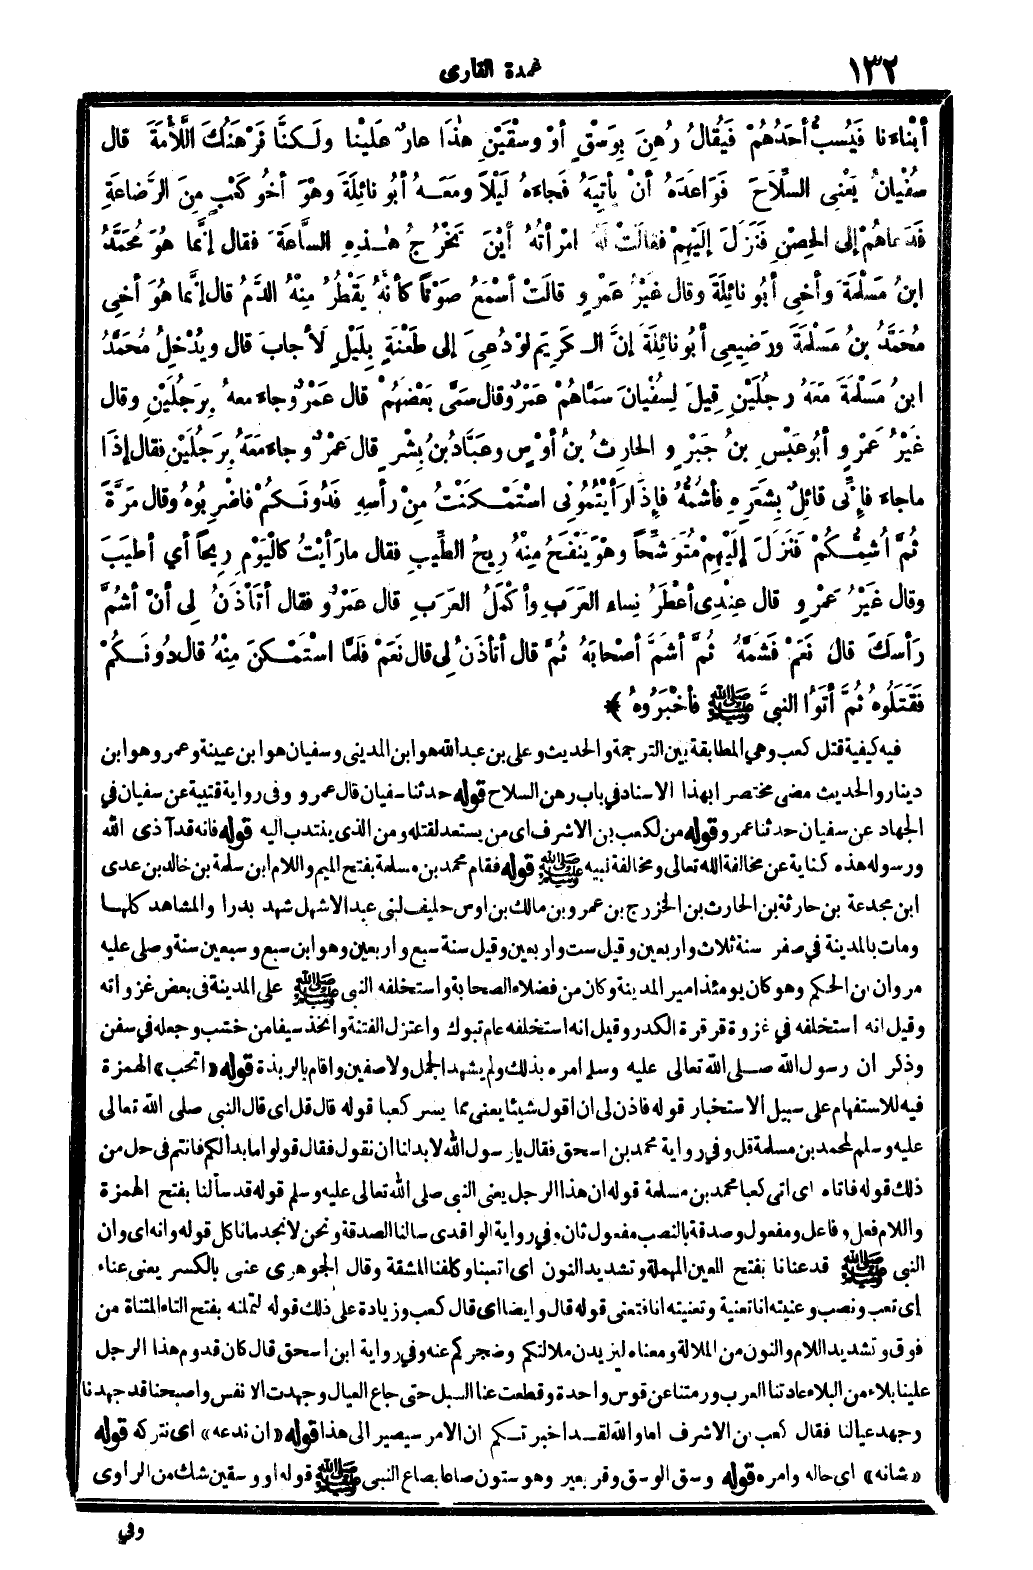 ١٣٢
عمدة القارى
أبْناءَنا فَيُسَبُّ أحَدُهُمْ فَيُقالُ رُهِنَ بِوَسْقٍ أوْ وسْقَيْنِ هٰذَا عارٌ علَيْنا ولَكنَّا نَرْهَنُكَ الَّلأْمَةَ قال
سُفْيانُ يَعْنِى السِّلاَحَ فَوَاعَدَهُ أنْ يأتِيَهُ فَجاءَهُ لَيْلاً ومعَهُ أبُو نائِلَةَ وهْوَ أخُو كَعْبٍ مِنَ الرَّضاعَةِ
فَدَعاهُمْ إلى الحِصْنِ فَنَزَلَ إلَيْهِمْ فقالَتْ لَهُ امْرأتُهُ أيْنَ تَخْرُجُ هٰذِهِ السَّاعَةَ فقال إنَّما هُوَ مُحَمَّدُ
ابنُ مَسْلَمَةَ وأخِى أبُو نائِلَةَ وقال غيْرُ عَمْرٍو قالَتْ أسْمَعُ صَوْتاً كأنَّهُ يَقْطُرُ مِنْهُ الدَّمُ قال إنَّما هُوَ أخِى
مُحَمَّدُ بنُ مَسْلَمَةَ ورَضِيعِى أبُو نائِلَةَ إنَّ الكَرِيمَ لوْ دُعِىَ إلى طَعْنَةٍ بِلَيْلٍ لَأجابَ قال ويُدْخِلُ مُحَمَّدُ
ابنُ مَسْلَمَةَ مَعَهُ رجُلَيْنِ قِيلَ لِسُفْيانَ سَمَّاهُمْ عَمْرٌو قال سَمَّى بَعْضَهُمْ قال عَمْرٌو جاءَ معهُ بِرَجُلَيْنِ وقال
غَيْرُ عَمْرٍو أبُو عَبْسِ بنُ جَبْرٍ و الحارِثُ بنُ أوْسٍ وعبَّادُ بنُ بِشْرٍ قال عَمْرٌو جاءَ مَعَهُ بِرَجُلَيْنِ فقال إذَا
ماجاءَ فإنِّى قائِلٌ بِشَعَرِهِ فأشَمُّهُ فإذَا رَأيْتُمُونِى اسْتَمْكَنْتُ مِنْ رأسِهِ فَدُونَكُمْ فاضْرِبُوهُ وقال مَرَّةً
ثُمَّ أُشِمُّكُمْ فَنَزَلَ إلَيْهِمْ مُتَوَشِّحاً وهْوَ يَنْفَحُ مِنْهُ رِيحُ الطِّيبِ فقال مارَأيْتُ كالْيَوْمِ رِيحاً أي أطْيَبَ
وقال غَيْرُ عَمْرٍو قال عِنْدِى أعْطَرُ نِساءِ العَرَبِ وأكْمَلُ العَرَبِ قال عَمْرٌو فقال أتَأْذَنُ لِى أنْ أشُمَّ
رَأسَكَ قالَ نَعَمْ فَشَمَّهُ ثُمَّ أشَمَّ أصْحابَهُ ثُمَّ قال أتأذَنُ لِى قال نَعَمْ فَلَمَّا اسْتَمْكنَ مِنْهُ قال دُونَكُمْ
فَقَتَلُوهُ ثُمَّ أتَوُا النبىَّ ﷺ فأخْبَرُوهُ ﴾
فيه كيفية قتل كعب وهي المطابقة بين الترجمة والحديث وعلى بن عبدالله هو ابن المدينى وسفيان هو ابن عيينة وعمرو هو ابن
دينار والحديث مضى مختصرا بهذا الاسناد في باب رهن السلاح قوله حدثنا سفيان قال عمرو وفى رواية قتيبة عن سفيان في
الجهاد عن سفيان حدثنا عمرو وقوله من لكعب بن الاشرف اى من يستعد لقتله ومن الذى ينتدب اليه قوله فانه قد آذى الله
ورسوله هذه كناية عن مخالفة الله تعالى ومخالفة نبيه ﷺ قوله فقام محمد بن مسلمة بفتح الميم واللام ابن سلمة بن خالد بن عدى
ابن مجدعة بن حارثة بن الحارث بن الخزرج بن عمرو بن مالك بن اوس حليف لبنى عبد الاشهل شهد بدرا والمشاهد كلها
ومات بالمدينة في صفر سنة ثلاث واربعين وقيل ست واربعين وقيل سنة سبع واربعين وهو ابن سبع وسبعين سنة وصلى عليه
مروان بن الحكم وهو كان يومئذ امير المدينة وكان من فضلاء الصحابة واستخلفه النبى ﷺ على المدينة فى بعض غزواته
وقيل انه استخلفه في غزوة قرقرة الكدر وقيل انه استخلفه عام تبوك واعتزل الفتنة واتخذ سيفا من خشب وجعله في سفن
وذكر ان رسول الله صلى الله تعالى عليه وسلم امره بذلك ولم يشهد الجمل ولا صفين واقام بالربذة قوله «اتحب» الهمزة
فيه للاستفهام على سبيل الاستخبار قوله فاذن لى ان اقول شيئا يعنى مما يسر كعبا قوله قال قل اى قال النبى صلى الله تعالى
عليه وسلم لمحمد بن مسلمة قل وفي رواية محمد بن اسحق فقال يارسول الله لابد لنا ان نقول فقال قولوا مابدا لكم فانتم فى حل من
ذلك قوله فاتاه اى اتى كعبا محمد بن مسلمة قوله ان هذا الرجل يعنى النبى صلى الله تعالى عليه وسلم قوله قد سألنا بفتح الهمزة
واللام فعل وفاعل ومفعول وصدقة بالنصب مفعول ثان وفي رواية الواقدى سالنا الصدقة ونحن لانجد مانأكل قوله وانه اى وان
النبى ﷺ قد عنانا بفتح العين المهملة وتشديد النون اى اتعبنا وكلفنا المشقة وقال الجوهرى عنى بالكسر يعنى عناء
اى تعب ونصب وعنيته اناتعنية وتعنيته انافتعنى قوله قال وايضا اى قال كعب وزيادة على ذلك قوله لتملنه بفتح التاء المثناة من
فوق وتشديد اللام والنون من الملالة ومعناه ليزيدن ملالتكم وضجركم عنه وفي رواية ابن اسحق قال كان قدوم هذا الرجل
علينا بلاء من البلاء عادتنا العرب ورمتنا عن قوس واحدة وقطعت عنا السبل حتى جاع العيال وجهدت الانفس واصبحنا قد جهدنا
وجهد عيالنا فقال كعب بن الاشرف اما والله لقد اخبرتكم ان الامر سيصير الى هذا قوله «ان ندعه» اى نتركه قوله
«شانه» اى حاله وامره قوله وسق الوسق وقر بعير وهو ستون صاعا بصاع النبى ﷺ قوله او وسقين شك من الراوى
وفي